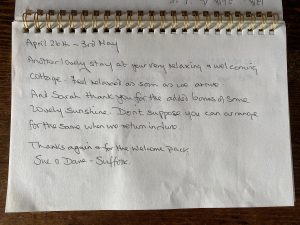 April 26th - 3rd May
Another lovely stay at your very relaxing & welcoming
cottage. Feel relaxed as soon as we arrive
And Sarah thank you for the added bonus of some
lovely sunshine. Don't suppose you can arrange
for the same when we return in
Thanks again & for the welcome pack
Sue & Dave - Suffolk.